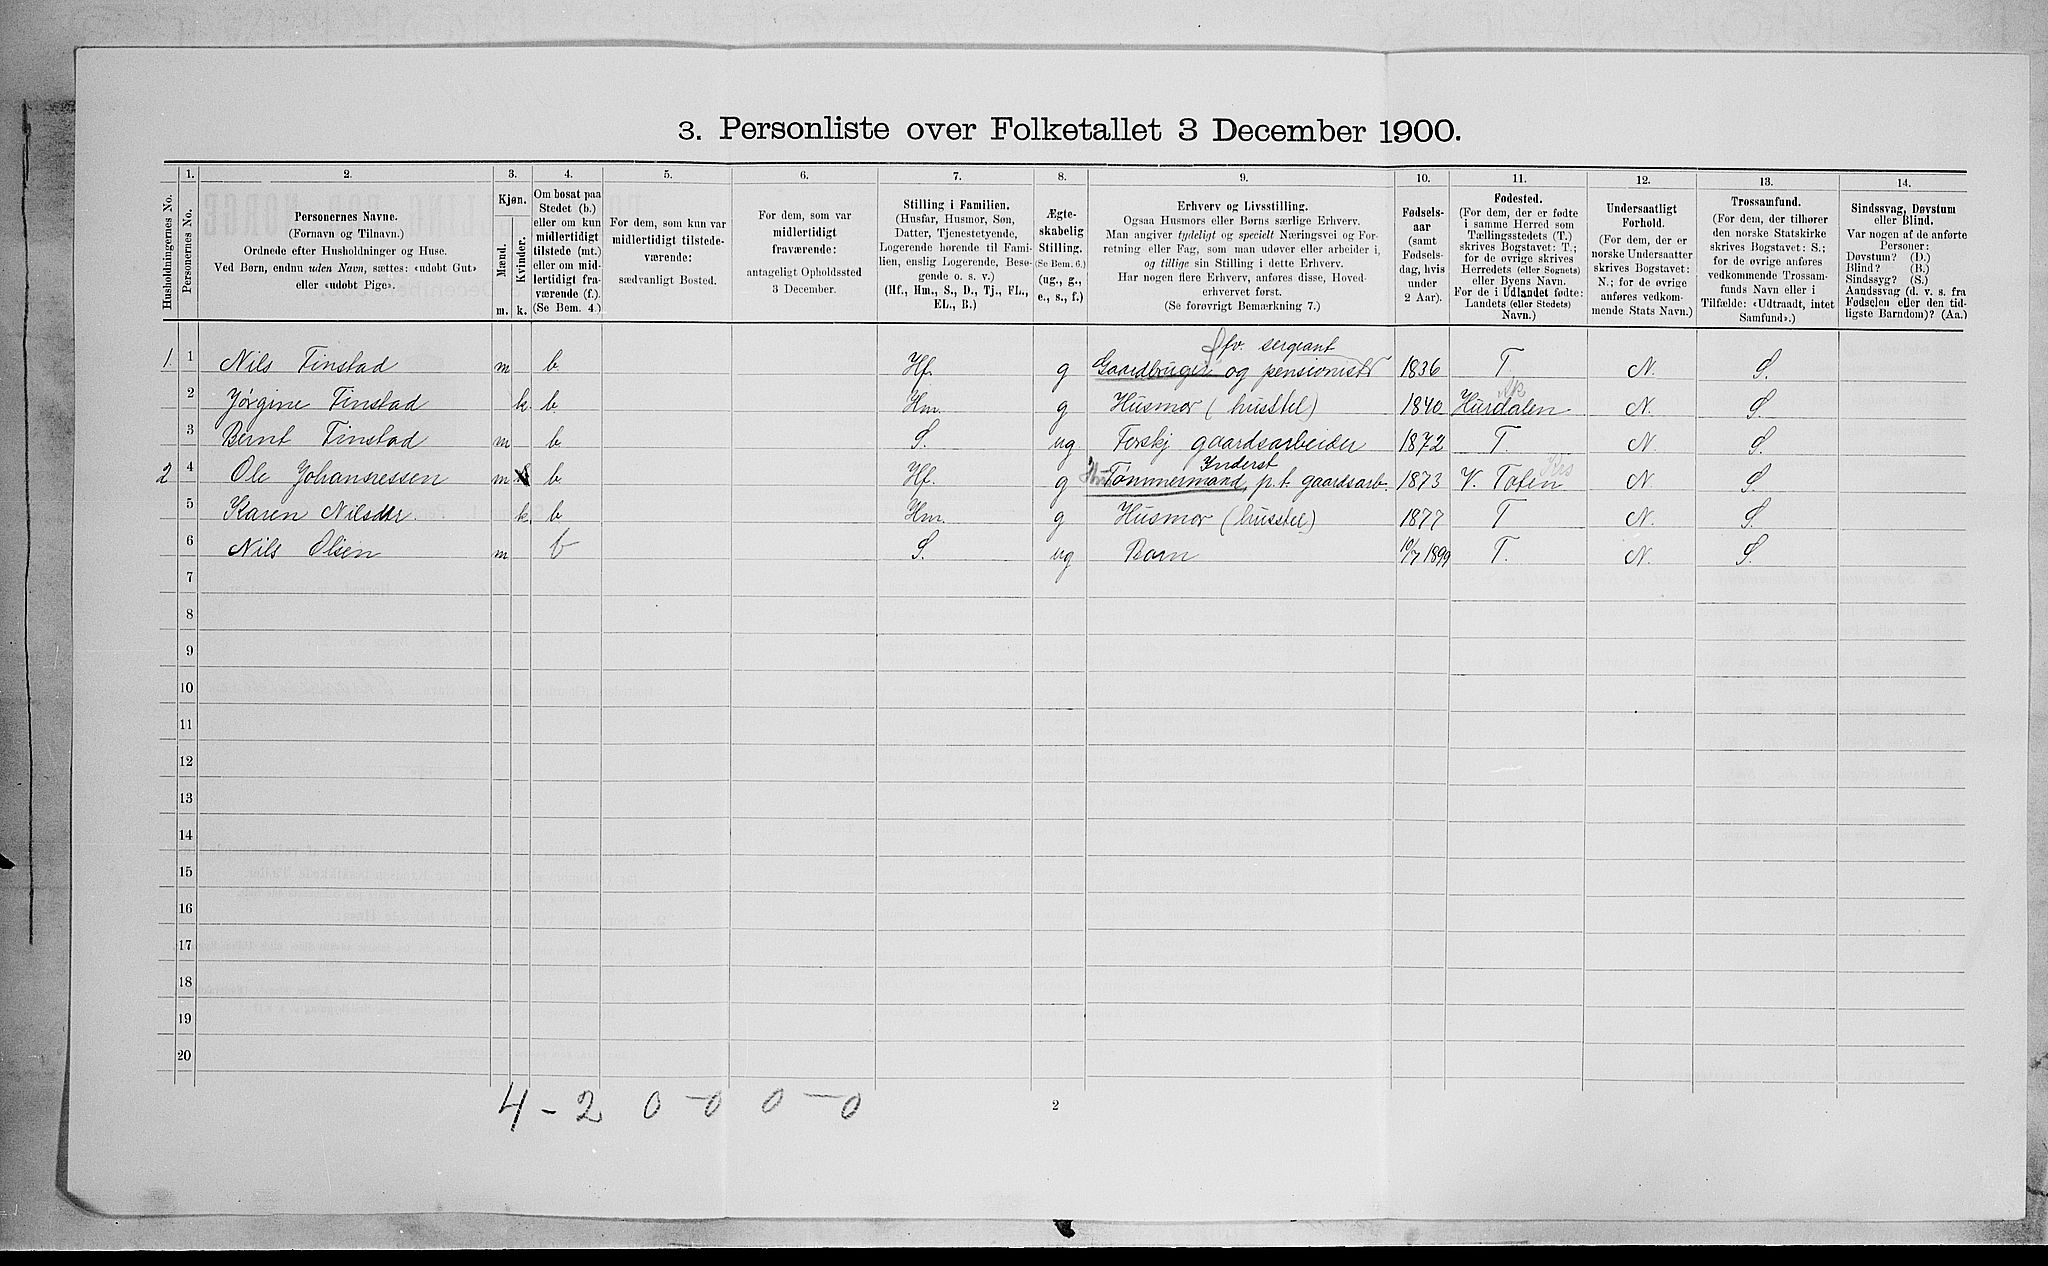 3. Personliste over Folketallet 3 December 1900.
Husholdningernes No.
1.
Personernes No.
2.
Personernes Navne.
(Fornavn og Tilnavn.)
Ordnede efter Husholdninger og Huse.
Ved Børn, endnu uden Navn, sættes: «udøbt Gut»
eller «udøbt Pige».
3.
Kjøn.
Mænd.
Kvinder.
m. k.
4.
Om bosat paa
Stedet (b.)
eller om kun
midlertidigt
tilstede (mt.)
eller om mid-
lertidigt fra-
værende (f.).
(Se Bem. 4.)
5.
For dem, som kun var
midlertidigt tilstede-
værende:
sædvanligt Bosted.
6.
For dem, som var
midlertidigt
fraværende:
antageligt Opholdssted
3 December.
7.
Stilling i Familien.
(Husfar, Husmor, Søn,
Datter, Tjenestetyende,
Logerende hørende til Fami-
lien, enslig Logerende, Besø-
gende o. s. v.)
(Hf., Hm., S., D., Tj., FL.,
EL., B.)
8.
Ægte-
skabelig
Stilling.
(Se Bem. 6.)
(ug., g.,
e., s., f.)
9.
Erhverv og Livsstilling.
Ogsaa Husmors eller Børns særlige Erhverv.
Man angiver tydeligt og specielt Næringsvei og For-
retning eller Fag, som man udøver eller arbeider i,
og tillige sin Stilling i dette Erhverv.
Har nogen flere Erhverv, anføres disse, Hoved-
erhvervet først.
(Se forøvrigt Bemærkning 7.)
10.
Fødsels-
aar
(samt
Fødsels-
dag, hvis
under
2 Aar).
11.
Fødested.
(For dem, der er fødte
i samme Herred som
Tællingsstedets (T.)
skrives Bogstavet: T.;
for de øvrige skrives
Herredets (eller Sognets)
eller Byens Navn.
For de i Udlandet fødte:
Landets (eller Stedets)
Navn.)
12.
Undersaatligt
Forhold.
(For dem, der er
norske Undersaatter
skrives Bogstavet:
N.; for de øvrige
anføres vedkom-
mende Stats Navn.)
13.
Trossamfund.
(For dem, der tilhører
den norske Statskirke
skrives Bogstavet: S.;
for de øvrige anføres
vedkommende Trossam-
funds Navn eller i
Tilfælde: «Udtraadt, intet
Samfund».)
14.
Sindssvag, Døvstum
eller Blind.
Var nogen af de anførte
Personer:
Døvstum? (D.)
Blind? (B.)
Sindssyg? (S.)
Aandssvag (d. v. s. fra
Fødselen eller den tid-
ligste Barndom)? (Aa.)
fv. sergeant
1. 1 Nils Tinstad m b Hf. g Gaardbruger og pensionist 1836 T N. S.
2 Jørgine Tinstad k. b Hm. g Husmor (husstel) 1840 Hurdalen N. S
3 Bernt Tinstad m b S. ug Forskj gaardsarbeider 1872 T. N S.
Inderst
2 4 Ole Johannessen m b Hf. g Tømmermand, p.t. gaardsarb. 1873 V. Toten N S.
5 Karen Nilsdtr. k. b Hm. g Husmor (husstel) 1877 T N. S.
6 Nils Olsen m b S. ug Barn 10/7 1899 T. N. S.
7
8
9
10
11
12
13
14
15
16
17
18
19
20
4 - 2 0 - 0 0 - 0
2